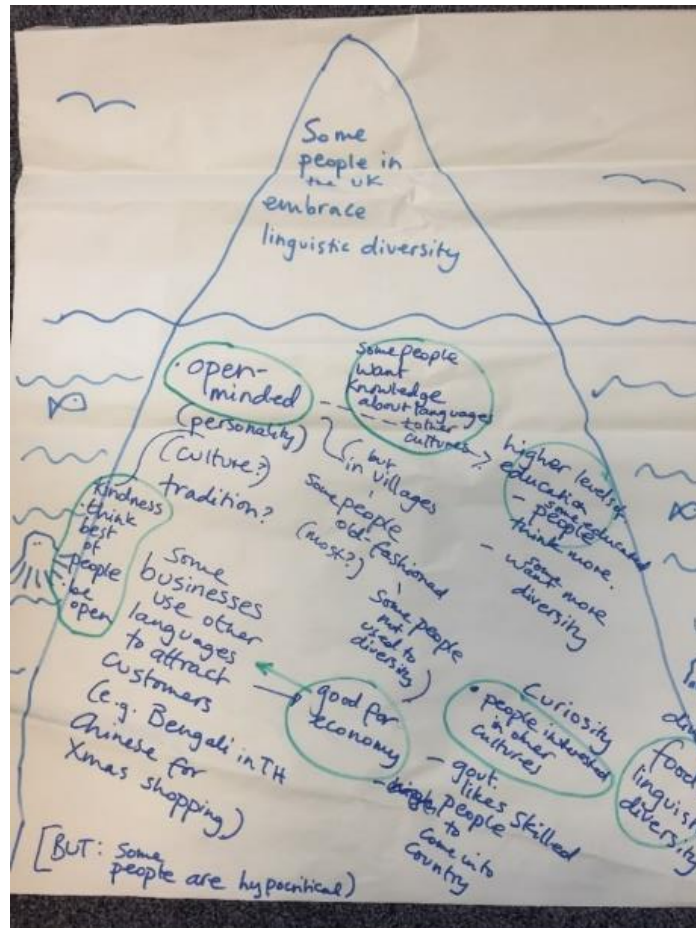 Some
people in
the UK
embrace
linguistic diversity
• open-
minded
(personality)
(culture?)
tradition?
Some people
want
knowledge
about languages
other
cultures
(but
in villages
Some people
old-fashioned
(most?)
Some people
not
used to
diversity)
higher levels of
education
- some educated
people
think more.
- some
want more
diversity
Kindness
• think
best
of
people
be
open
Some
businesses
use other
languages
to attract
customers
(e.g. Bengali in TH
Chinese for
Xmas shopping)
good for
economy
- govt.
likes skilled
people
to
come into
country
Curiosity
• people interested
in other
cultures
food
diversity
[BUT: some
people are hypocritical)